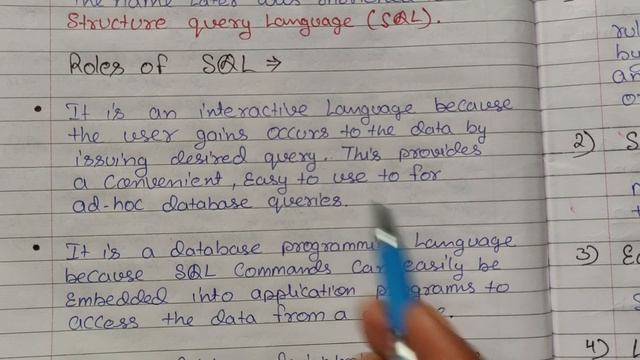 Structure query Language (SQL).
Roles of SQL ⇒
• It is an interactive Language because
the user gains occurs to the data by
issuing desired query. This provides
a convenient, Easy to use to for
ad-hoc database queries.
• It is a database programming Language
because SQL Commands Can easily be
Embedded into application programs to
access the data from a
2)
3)
4)